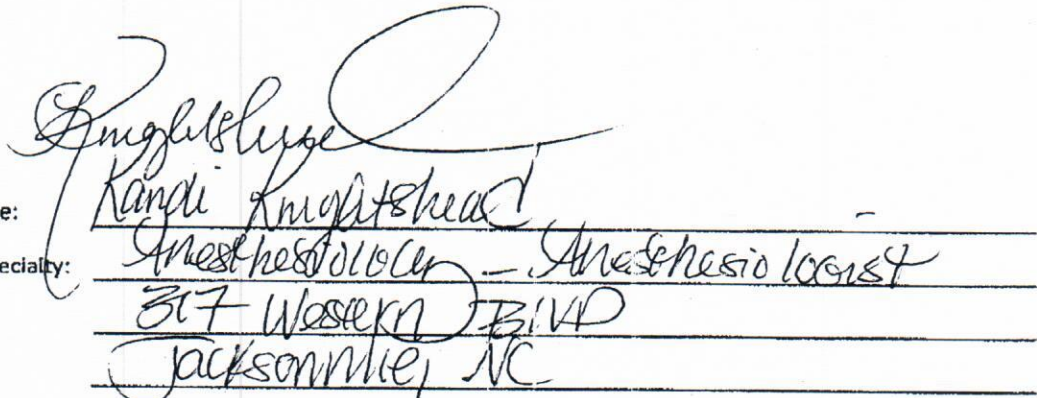 Knightshead
e: Kandi Knightshead
ecialty: Anesthesiology - Anesthesiologist
317 Western Blvd
Jacksonville, NC